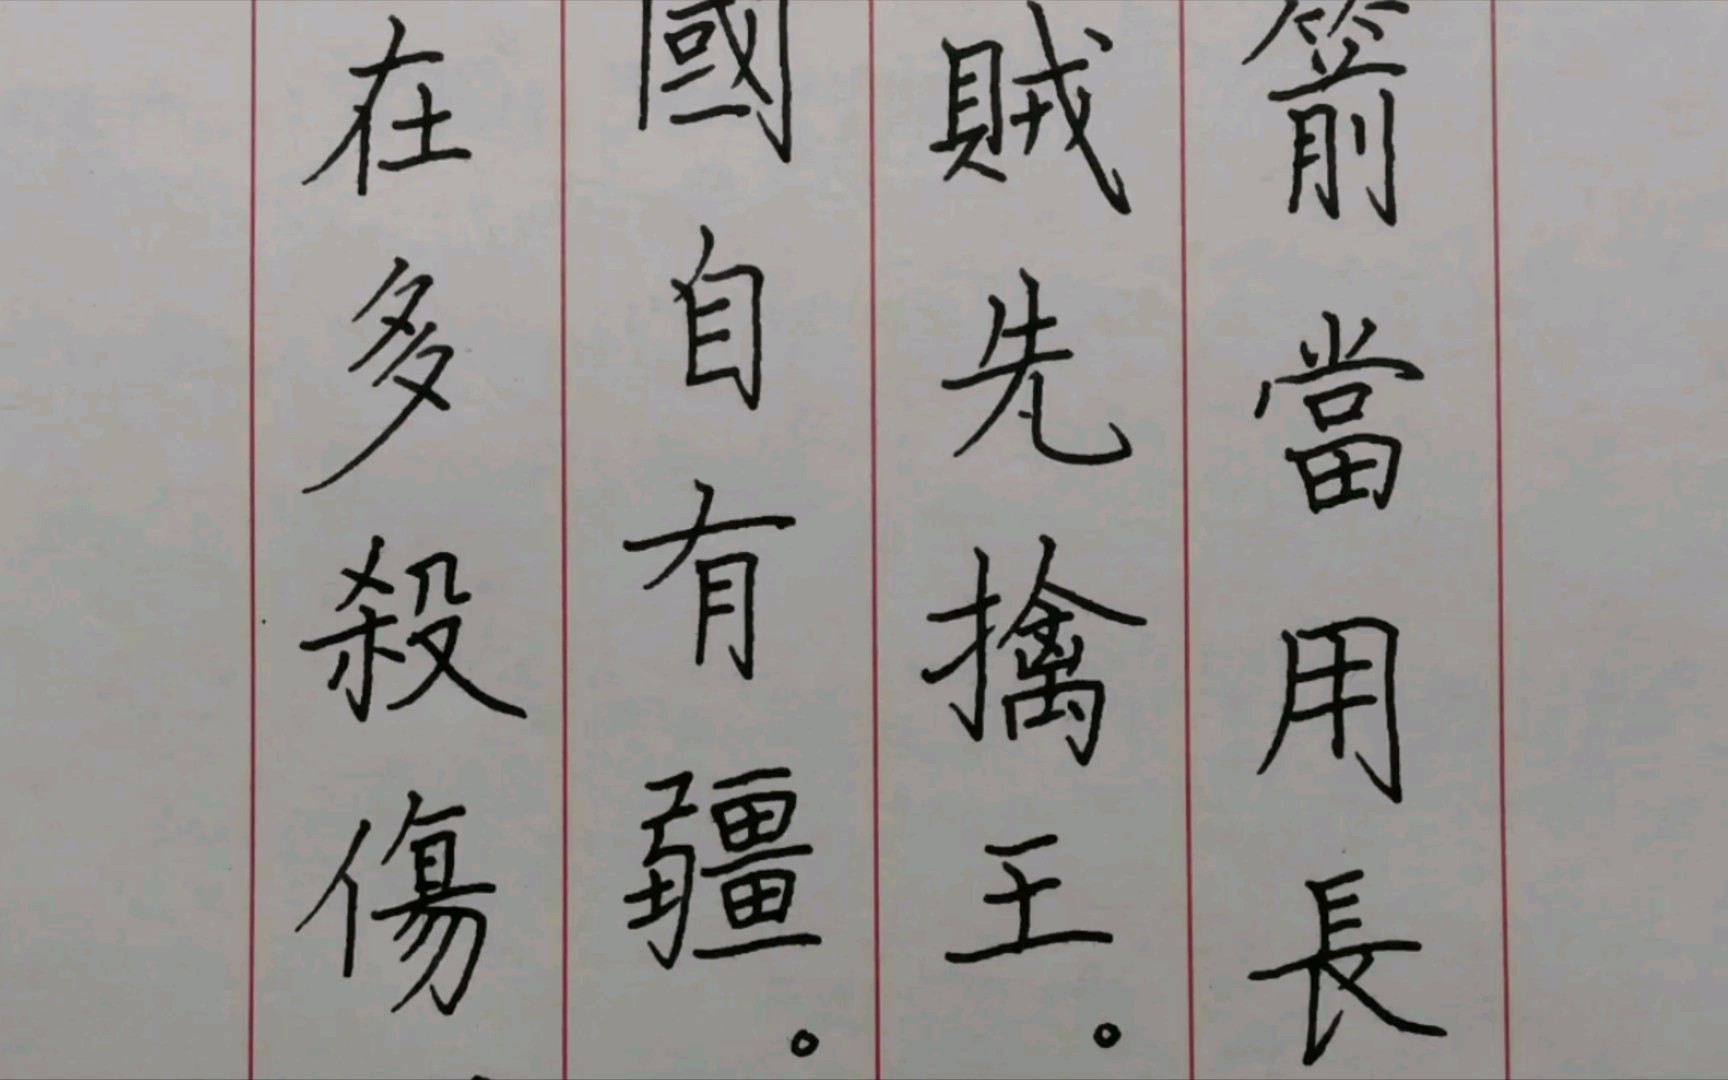 箭當用長
賊先擒王。
國自有疆。
在多殺傷